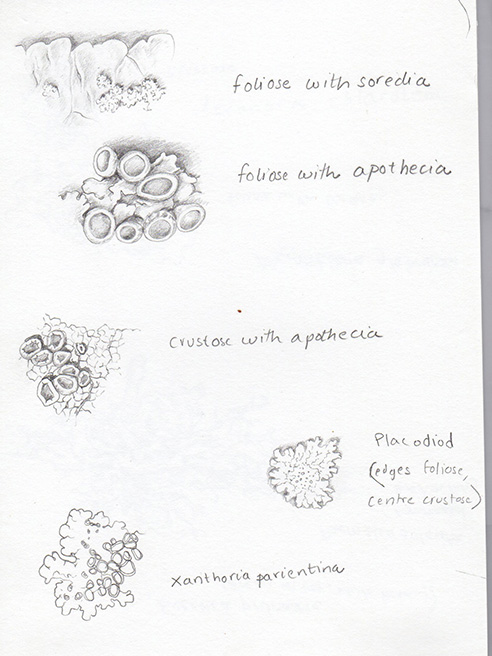 foliose with soredia
foliose with apothecia
crustose with apothecia
Placodiod
(edges foliose,
centre crustose)
Xanthoria parientina